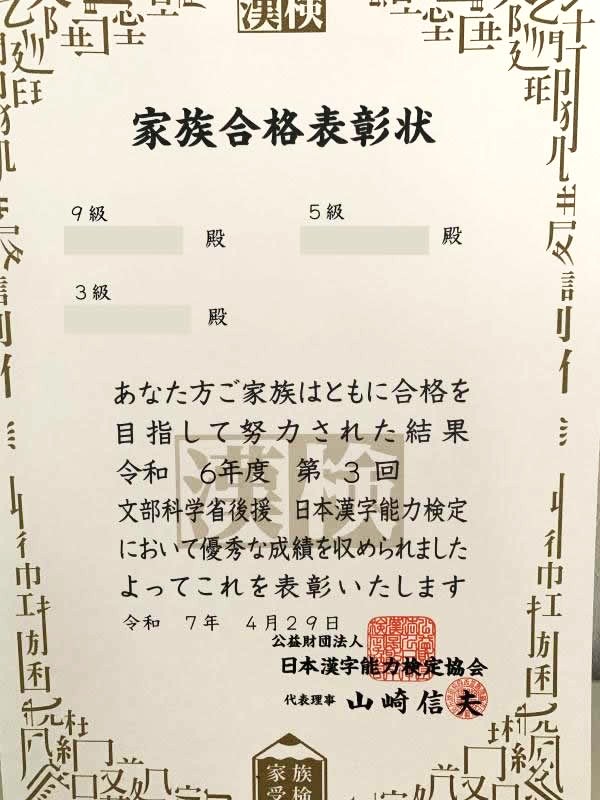 漢検
家族合格表彰状
9級 5級
殿 殿
3級
殿
あなた方ご家族はともに合格を
目指して努力された結果
令和 6年度 第 3 回
漢検
文部科学省後援 日本漢字能力検定
において優秀な成績を収められました
よってこれを表彰いたします
令和 7年 4月29日
公益財団法人
日本漢字能力検定協会
代表理事 山崎信夫
家族
受検